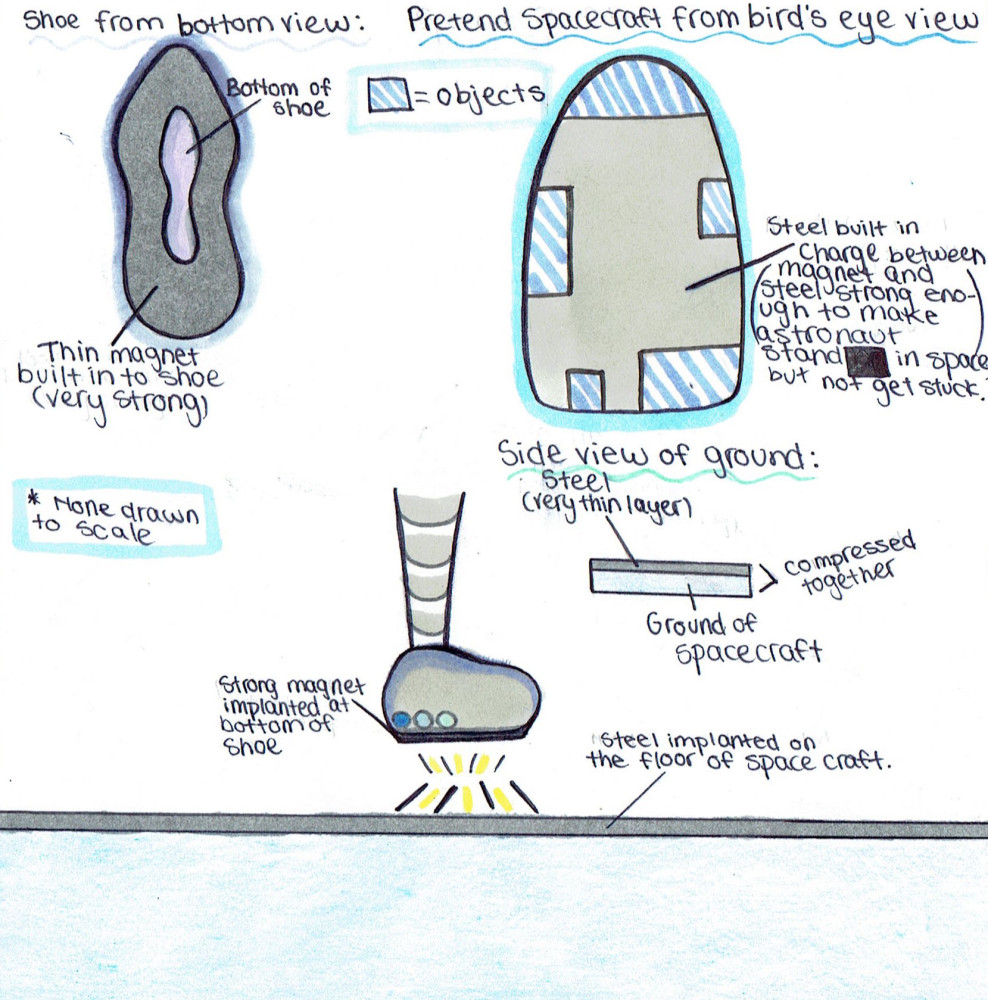 Shoe from bottom view:
Bottom of
shoe
Thin magnet
built in to shoe
(very strong)
Pretend Spacecraft from bird's eye view
= objects
Steel built in
(Charge between
magnet and
steel strong eno-
ugh to make
astronaut
stand in space
but not get stuck.)
Side view of ground:
Steel
(very thin layer)
compressed
together
Ground of
spacecraft
* None drawn
to scale
Strong magnet
implanted at
bottom of
shoe
Steel implanted on
the floor of space craft.